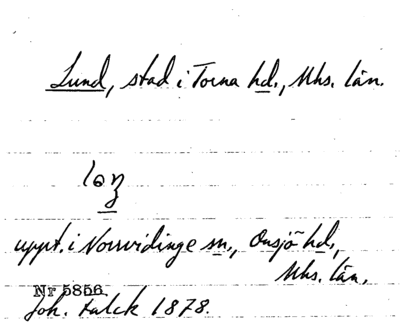 Lund, stad i Torna hd., Mhs. län.
uppt. i Norrvidinge sn., Onsjö hd.,
Mhs. län.
Nr 5856.
Joh. Falck 1878.